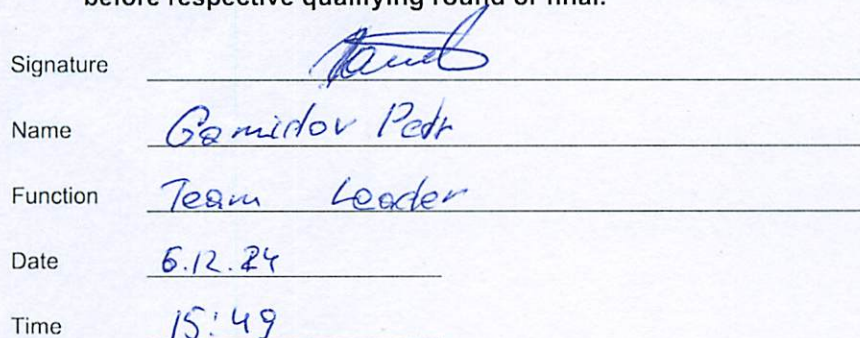 before respective qualifying round or final.
Signature
Name Gamidov Petr
Function Team Leader
Date 6.12.24
Time 15:49